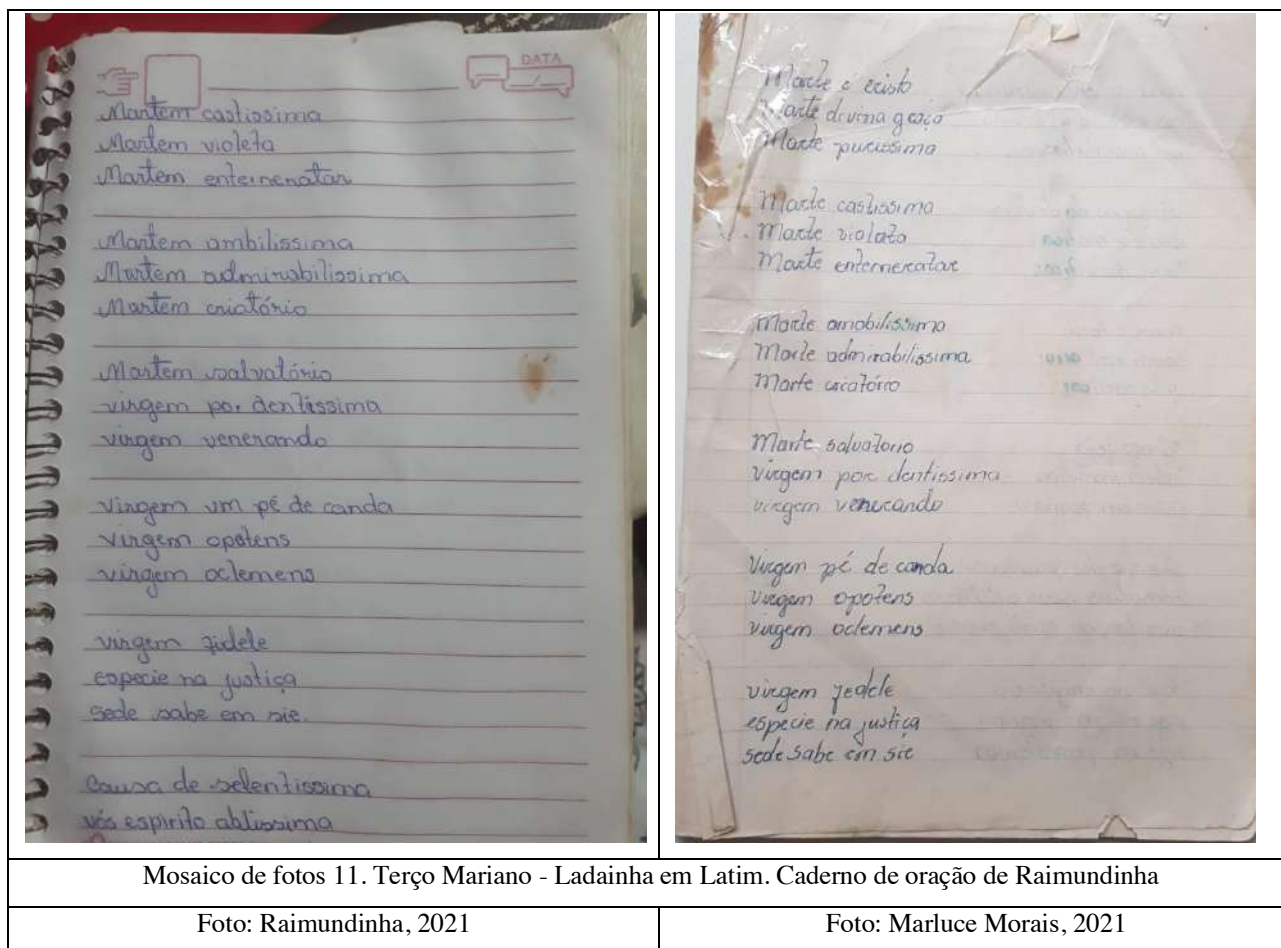 DATA
Martem castissima
Martem violeta
Martem enteineratar
Martem ambilissima
Martem admirabilissima
Martem criatório
Martem salvatório
virgem por dentissima
virgem venerando
virgem um pé de canda
virgem opotens
virgem oclemens
virgem fidele
especie na justiça
sede sabe em sie.
causa de selentissima
vós espirito ablissima
Marte é cristo
Marte divina graça
Marte purissima
Marte castissima
Marte violata
Marte entemeratar
Marte amabilissima
Marte admirabilissima
Marte criatório
Marte salvatorio
virgem por dentissima
virgem venerando
Virgem pé de canda
Virgem opotens
virgem oclemens
virgem
especie na justiça
sede sabe em sie
Mosaico de fotos 11. Terço Mariano - Ladainha em Latim. Caderno de oração de Raimundinha
Foto: Raimundinha, 2021
Foto: Marluce Morais, 2021